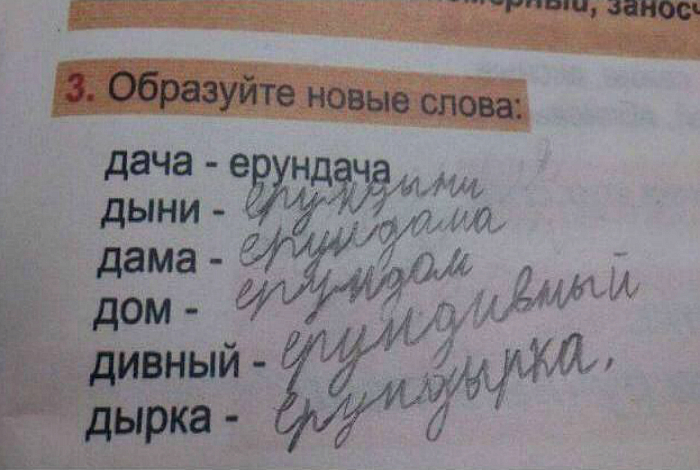 мерный, заносч
3. Образуйте новые слова:
дача - ерундача
дыни - ерундыни
дама - ерундама
дом - ерундом
дивный - ерундивный
дырка - ерундырка.